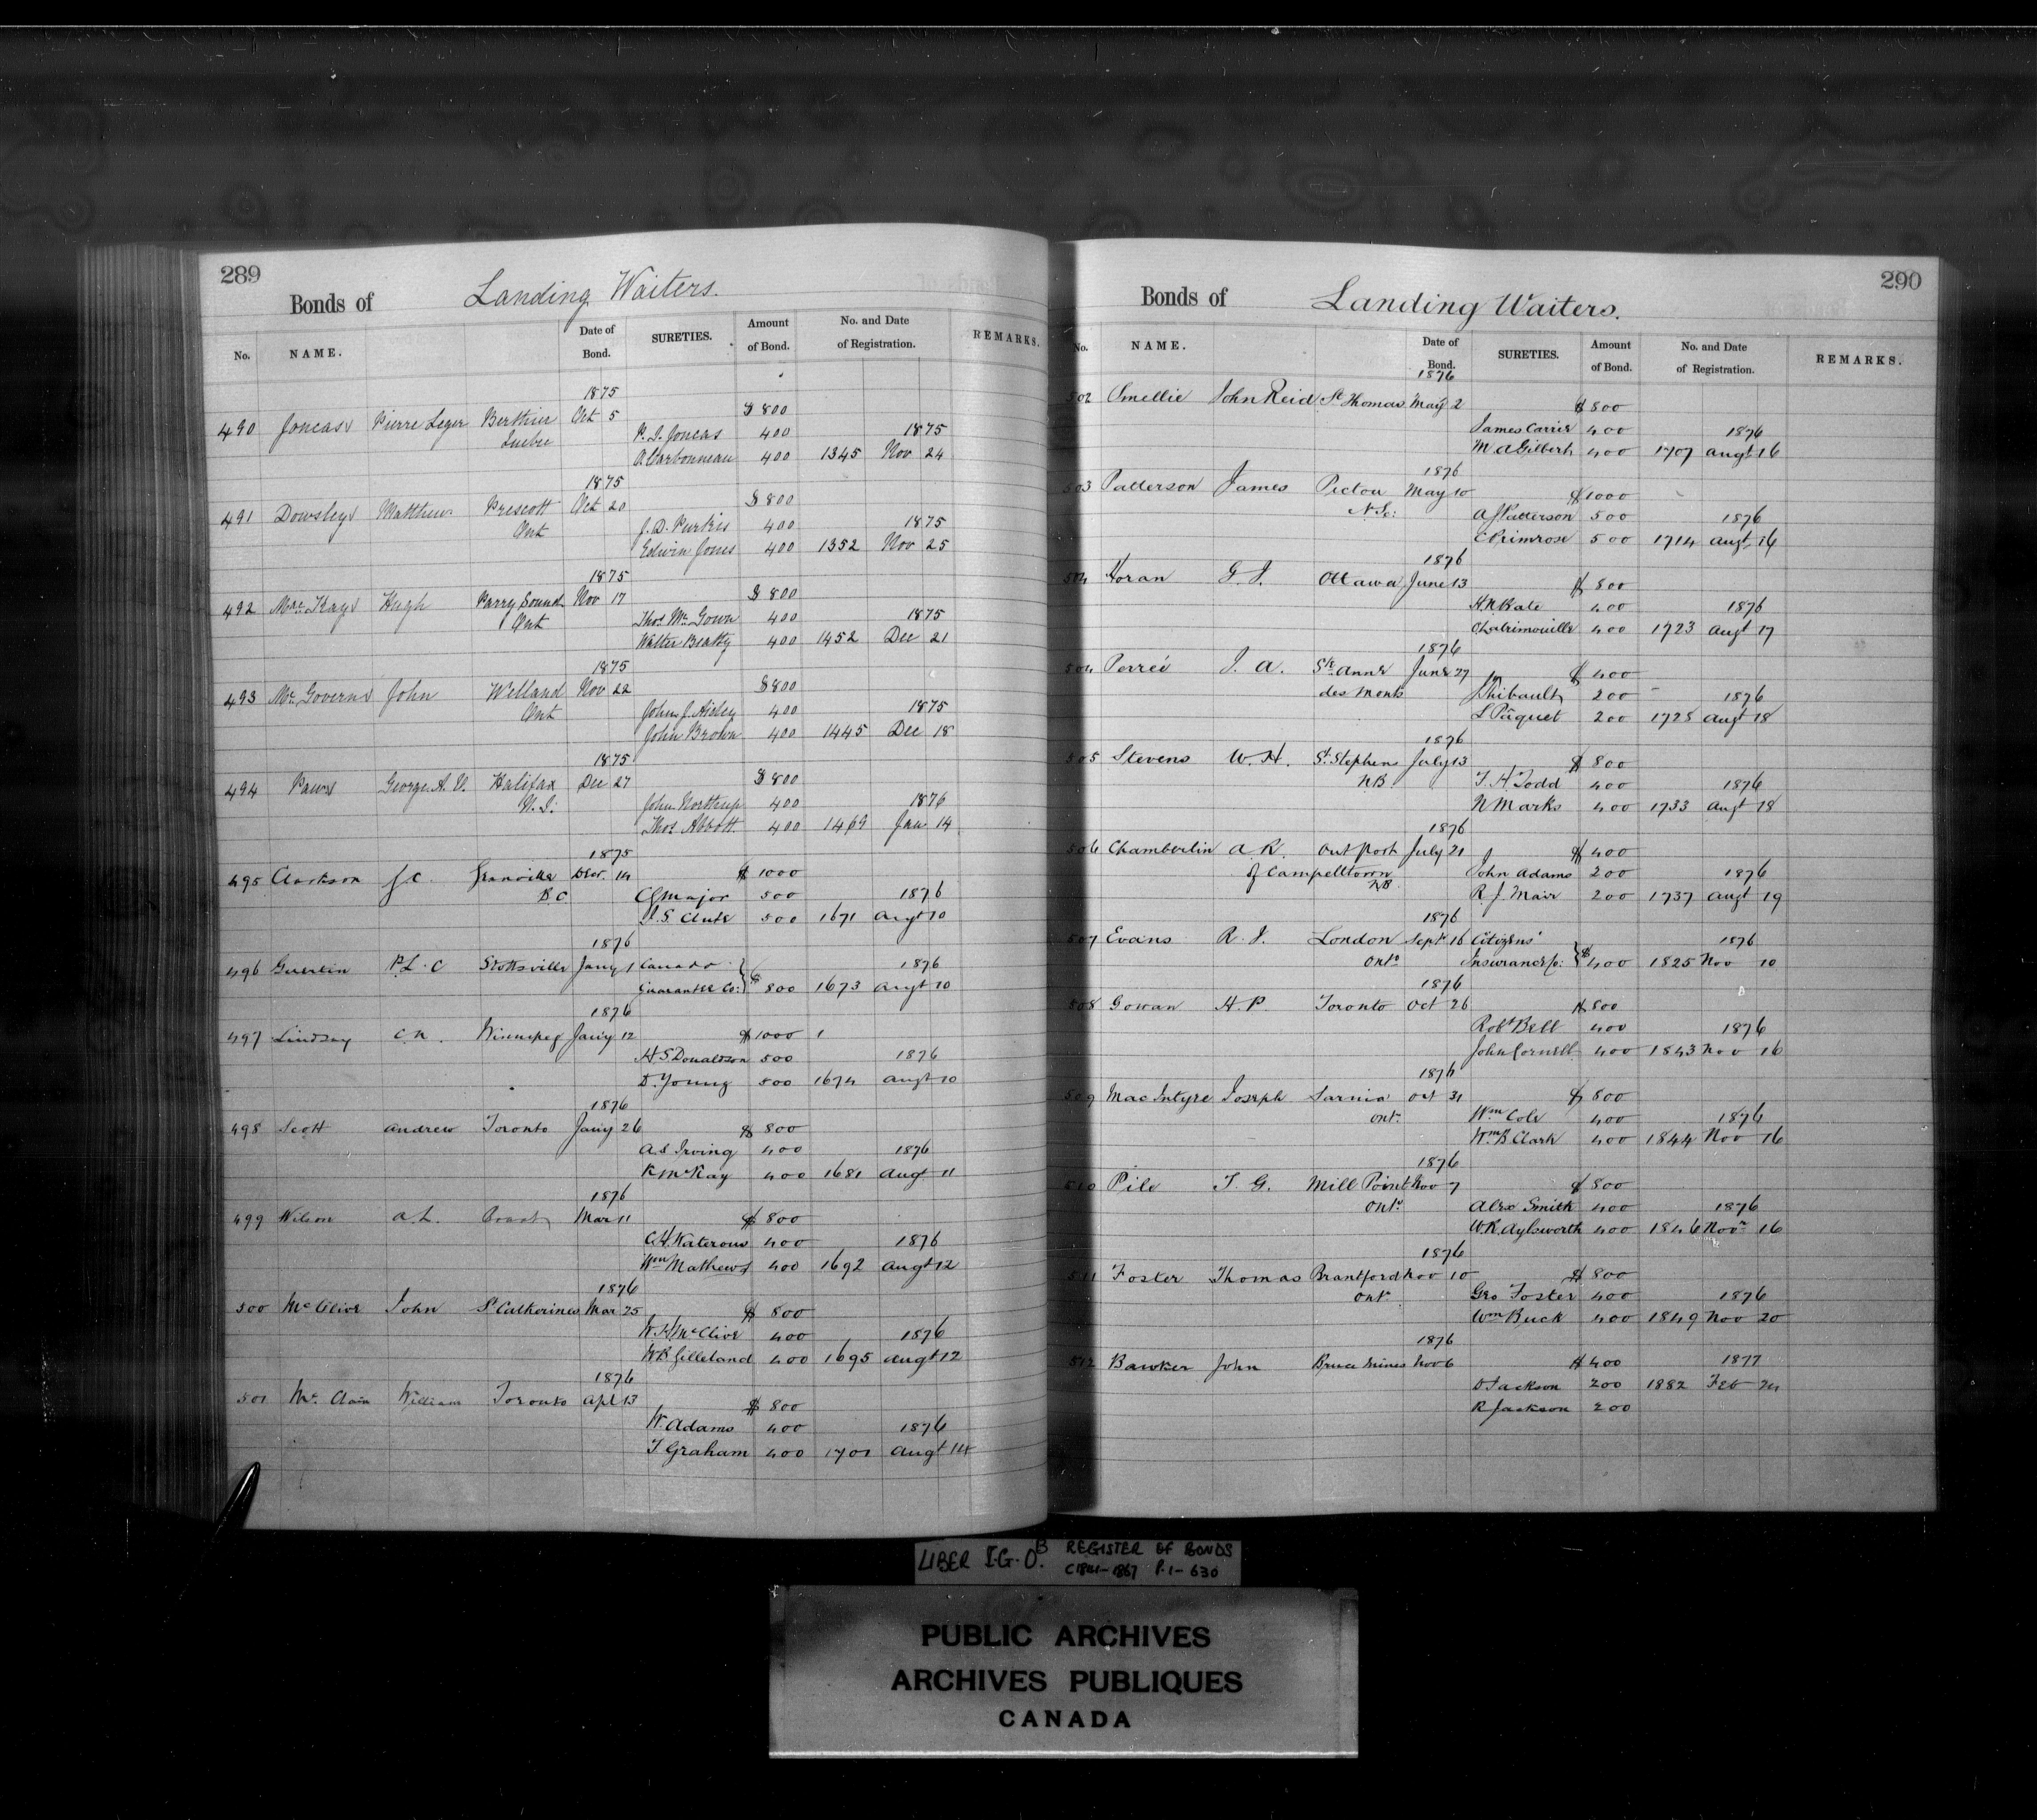 289
Bonds of Landing Waiters.
No. NAME. Date of Bond. SURETIES. Amount of Bond. No. and Date of Registration. REMARKS.
1875
490 Joncas Pierre Leger Berthier Oct 5 $800
Quebec P. S. Joncas 400 1875
A. Carbonneau 400 1345 Nov 24
1875
491 Dowsley Matthew Prescott Oct 20 $800
Ont J. D. Purkis 400 1875
Edwin Jones 400 1352 Nov 25
1875
492 MacKay Hugh Parry Sound Nov 17 $800
Ont Thos McGown 400 1875
Walter Beatty 400 1452 Dec 21
1875
493 McGovern John Welland Nov 22 $800
Ont John J. 400 1875
John Brown 400 1445 Dec 18
1875
494 George A. V. Halifax Dec 27 $800
N.S. John Northup 400 1876
Thos Abbott 400 1469 Jan 14
1875
495 Clarkson J. C. Granville Decr. 14 $1000
B C C G Major 500 1876
J. S. Clute 500 1671 Augt 10
1876
496 Guertin P. L. C Stottsville Jany 1 Canada
1876
Guarantee Co: $800 1673 Augt 10
1876
497 Lindsay C. N. Winnepeg Jany 12 $1000 1
H. S. Donaldson 500 1876
D. Young 500 1674 Augt 10
1876
498 Scott Andrew Toronto Jany 26 $800
A. S. Irving 400 1876
R McKay 400 1681 Augt 11
1876
499 Wilson A. L. Mar 11 $800
C. H. Waterous 400 1876
Wm Mathews 400 1692 Augt 12
1876
500 McClive John St Catherines Mar 25 $800
W. H. McClive 400 1876
W B Gilleland 400 1695 Augt 12
1876
501 Mc Clain William Toronto Apl 13 $800
W. Adams 400 1876
T Graham 400 1701 Augt 14
290
Bonds of Landing Waiters.
No. NAME. Date of Bond. SURETIES. Amount of Bond. No. and Date of Registration. REMARKS.
1876
502 Smellie John Reid St Thomas May 2 $800
James Carrie 400 1876
M A Gilbert 400 1707 Augt 16
1876
503 Patterson James Pictou May 10 $1000
N. Sc: A J Patterson 500 1876
C Primrose 500 1714 Augt 16
1876
504 Horan G. J. Ottawa June 13 $800
H. N Bate 400 1876
400 1723 Augt 17
1876
504 Perreé J. A. Ste Anne June 27 $400
des Monts Thibault 200 1876
L Paquet 200 1728 Augt 18
1876
505 Stevens W. H. St. Stephens July 13 $800
NB T. H Todd 400 1876
N Marks 400 1733 Augt 18
1876
506 Chamberlin A R. Out port July 21 $400
of Campelltown NB John Adams 200 1876
R. J. Mair 200 1737 Augt 19
1876
507 Evans R. J. London Sept 16 Citizens' 1876
Onto Insurance Co: $400 1825 Nov 10
1876
508 Gowan H. P. Toronto Oct 26 $800
Robt Bell 400 1876
John Cornell 400 1843 Nov 16
1876
509 MacIntyre Joseph Sarnia Oct 31 $800
Ont. Wm Cole 400 1876
Wm B Clark 400 1844 Nov 16
1876
510 Pile T. G. Mill Point Nov 7 $800
Ont. Alex Smith 400 1876
W. R. Aylsworth 400 1846 Novr 16
1876
511 Foster Thomas Brantford Nov 10 $800
Ont. Geo Foster 400 1876
Wm Buck 400 1849 Nov 20
1876
512 Bawker John Bruce Mines Nov 6 $400 1877
D Jackson 200 1882 Feb 24
R Jackson 200
LIBER I.G.O.B REGISTER OF BONDS
C1841-1867 P.1-630
PUBLIC ARCHIVES
ARCHIVES PUBLIQUES
CANADA